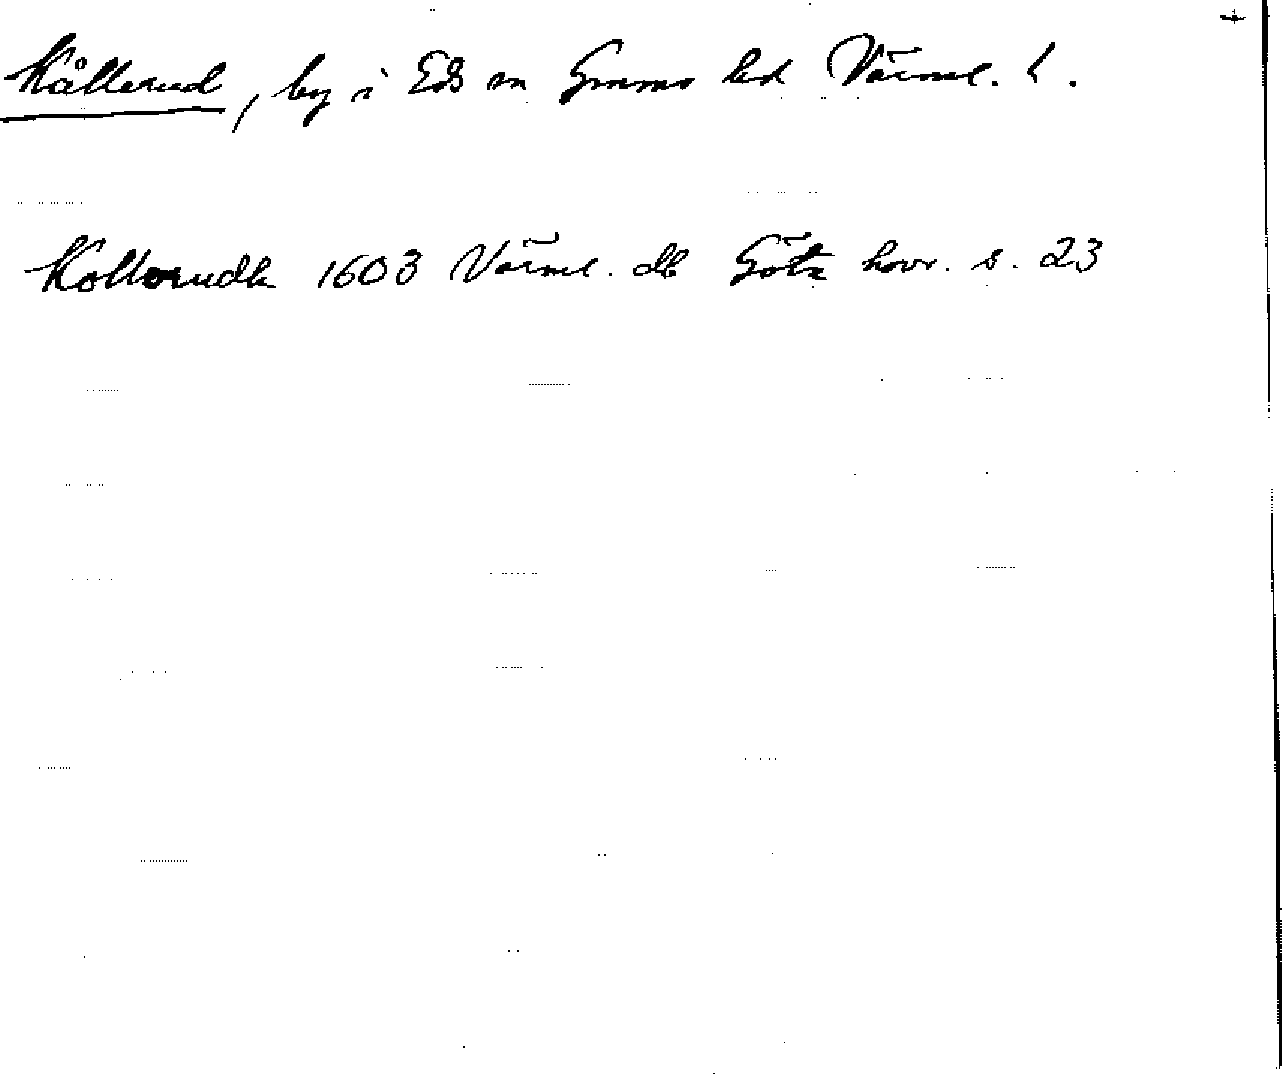 Kållerud, by i Eds sn Grums hd Värml. l.
Kollerudh 1603 Värml. db Göta hovr. s. 23